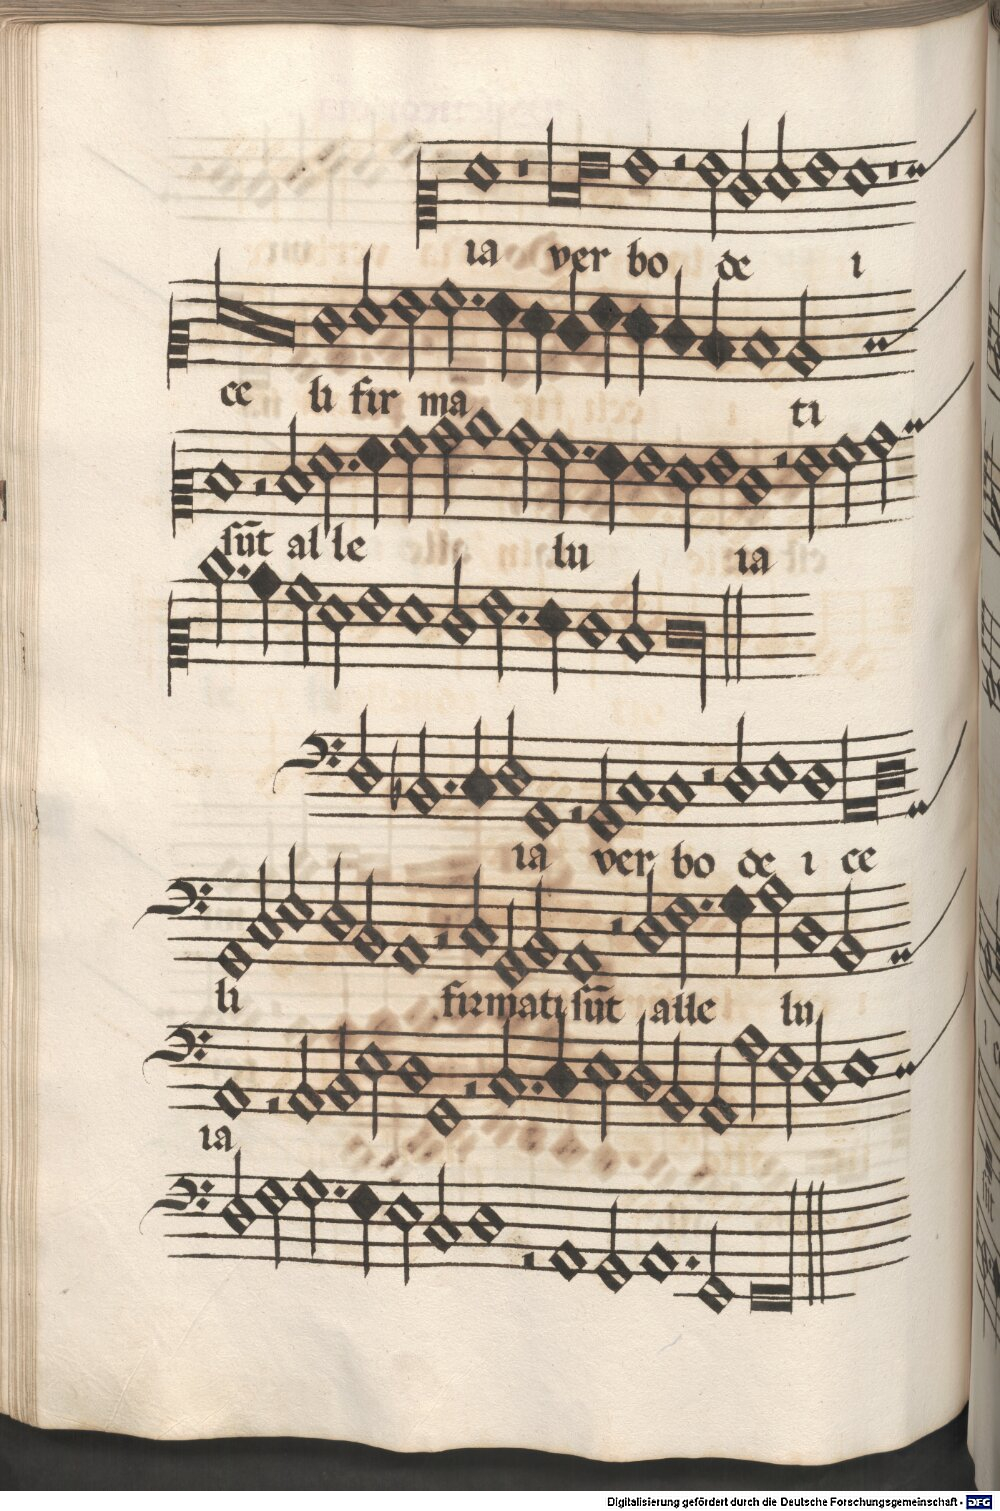 ia ver bo de i
ce li fir ma ti
sūt al le lu ia
ia ver bo de i ce
li firmati sūt alle lu
ia
Digitalisierung gefördert durch die Deutsche Forschungsgemeinschaft - DFG